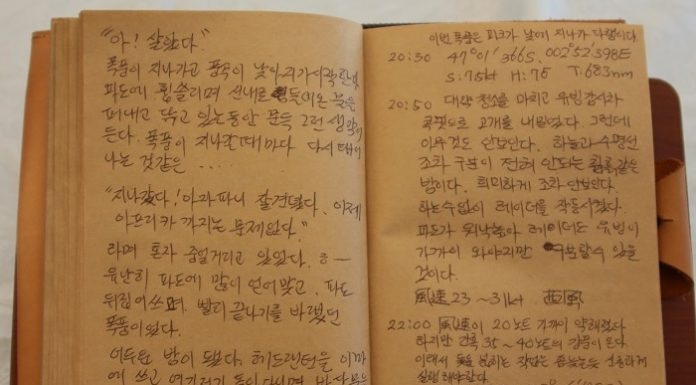 "아! 살았다."
폭풍이 지나가고 풍속이 낮아지기 시작한다.
파도에 휩쓸리며 선내로 들어온 물을
퍼내고 닦고 있는 동안 문득 그런 생각이
든다. 폭풍이 지나갈 때마다 다시 태어
나는 것같은 ....
"지나갔다! 아라파니 잘 견뎠다. 이제
아프리카 까지는 문제없다."
라며 혼자 중얼거리고 있었다. 휴—
유난히 파도에 많이 얻어맞고, 파도
뒤집어쓰며, 빨리 끝나기를 바랬던
폭풍이었다.
어두운 밤이 됐다. 헤드랜턴을 이마
에 쓰고
이번 폭풍은 피크가 낮에 지나가 다행이다.
20:30 47°01'366S, 002°52'598E
S:7.5kt H:75 T:683nm
20:50 대략 청소를 마치고 유빙감시차
콕핏으로 고개를 내밀었다. 그런데
아무것도 안보인다. 하늘과 수평선
조차 구분이 전혀 안되는 칠흑같은
밤이다. 희미하게 조차 안보인다.
하는수없이 레이더를 작동시켰다.
파도가 워낙높아 레이더도 유빙이
가까이 와야지만 구분할수 있을
것이다.
風速 23 ~ 31kt 西風
22:00 風速이 20노트 가까이 약해졌다.
하지만 간혹 35 ~ 40노트의 강풍이 온다.
이래서 돛을 넓히는 작업은 신중하게
실행해야한다.